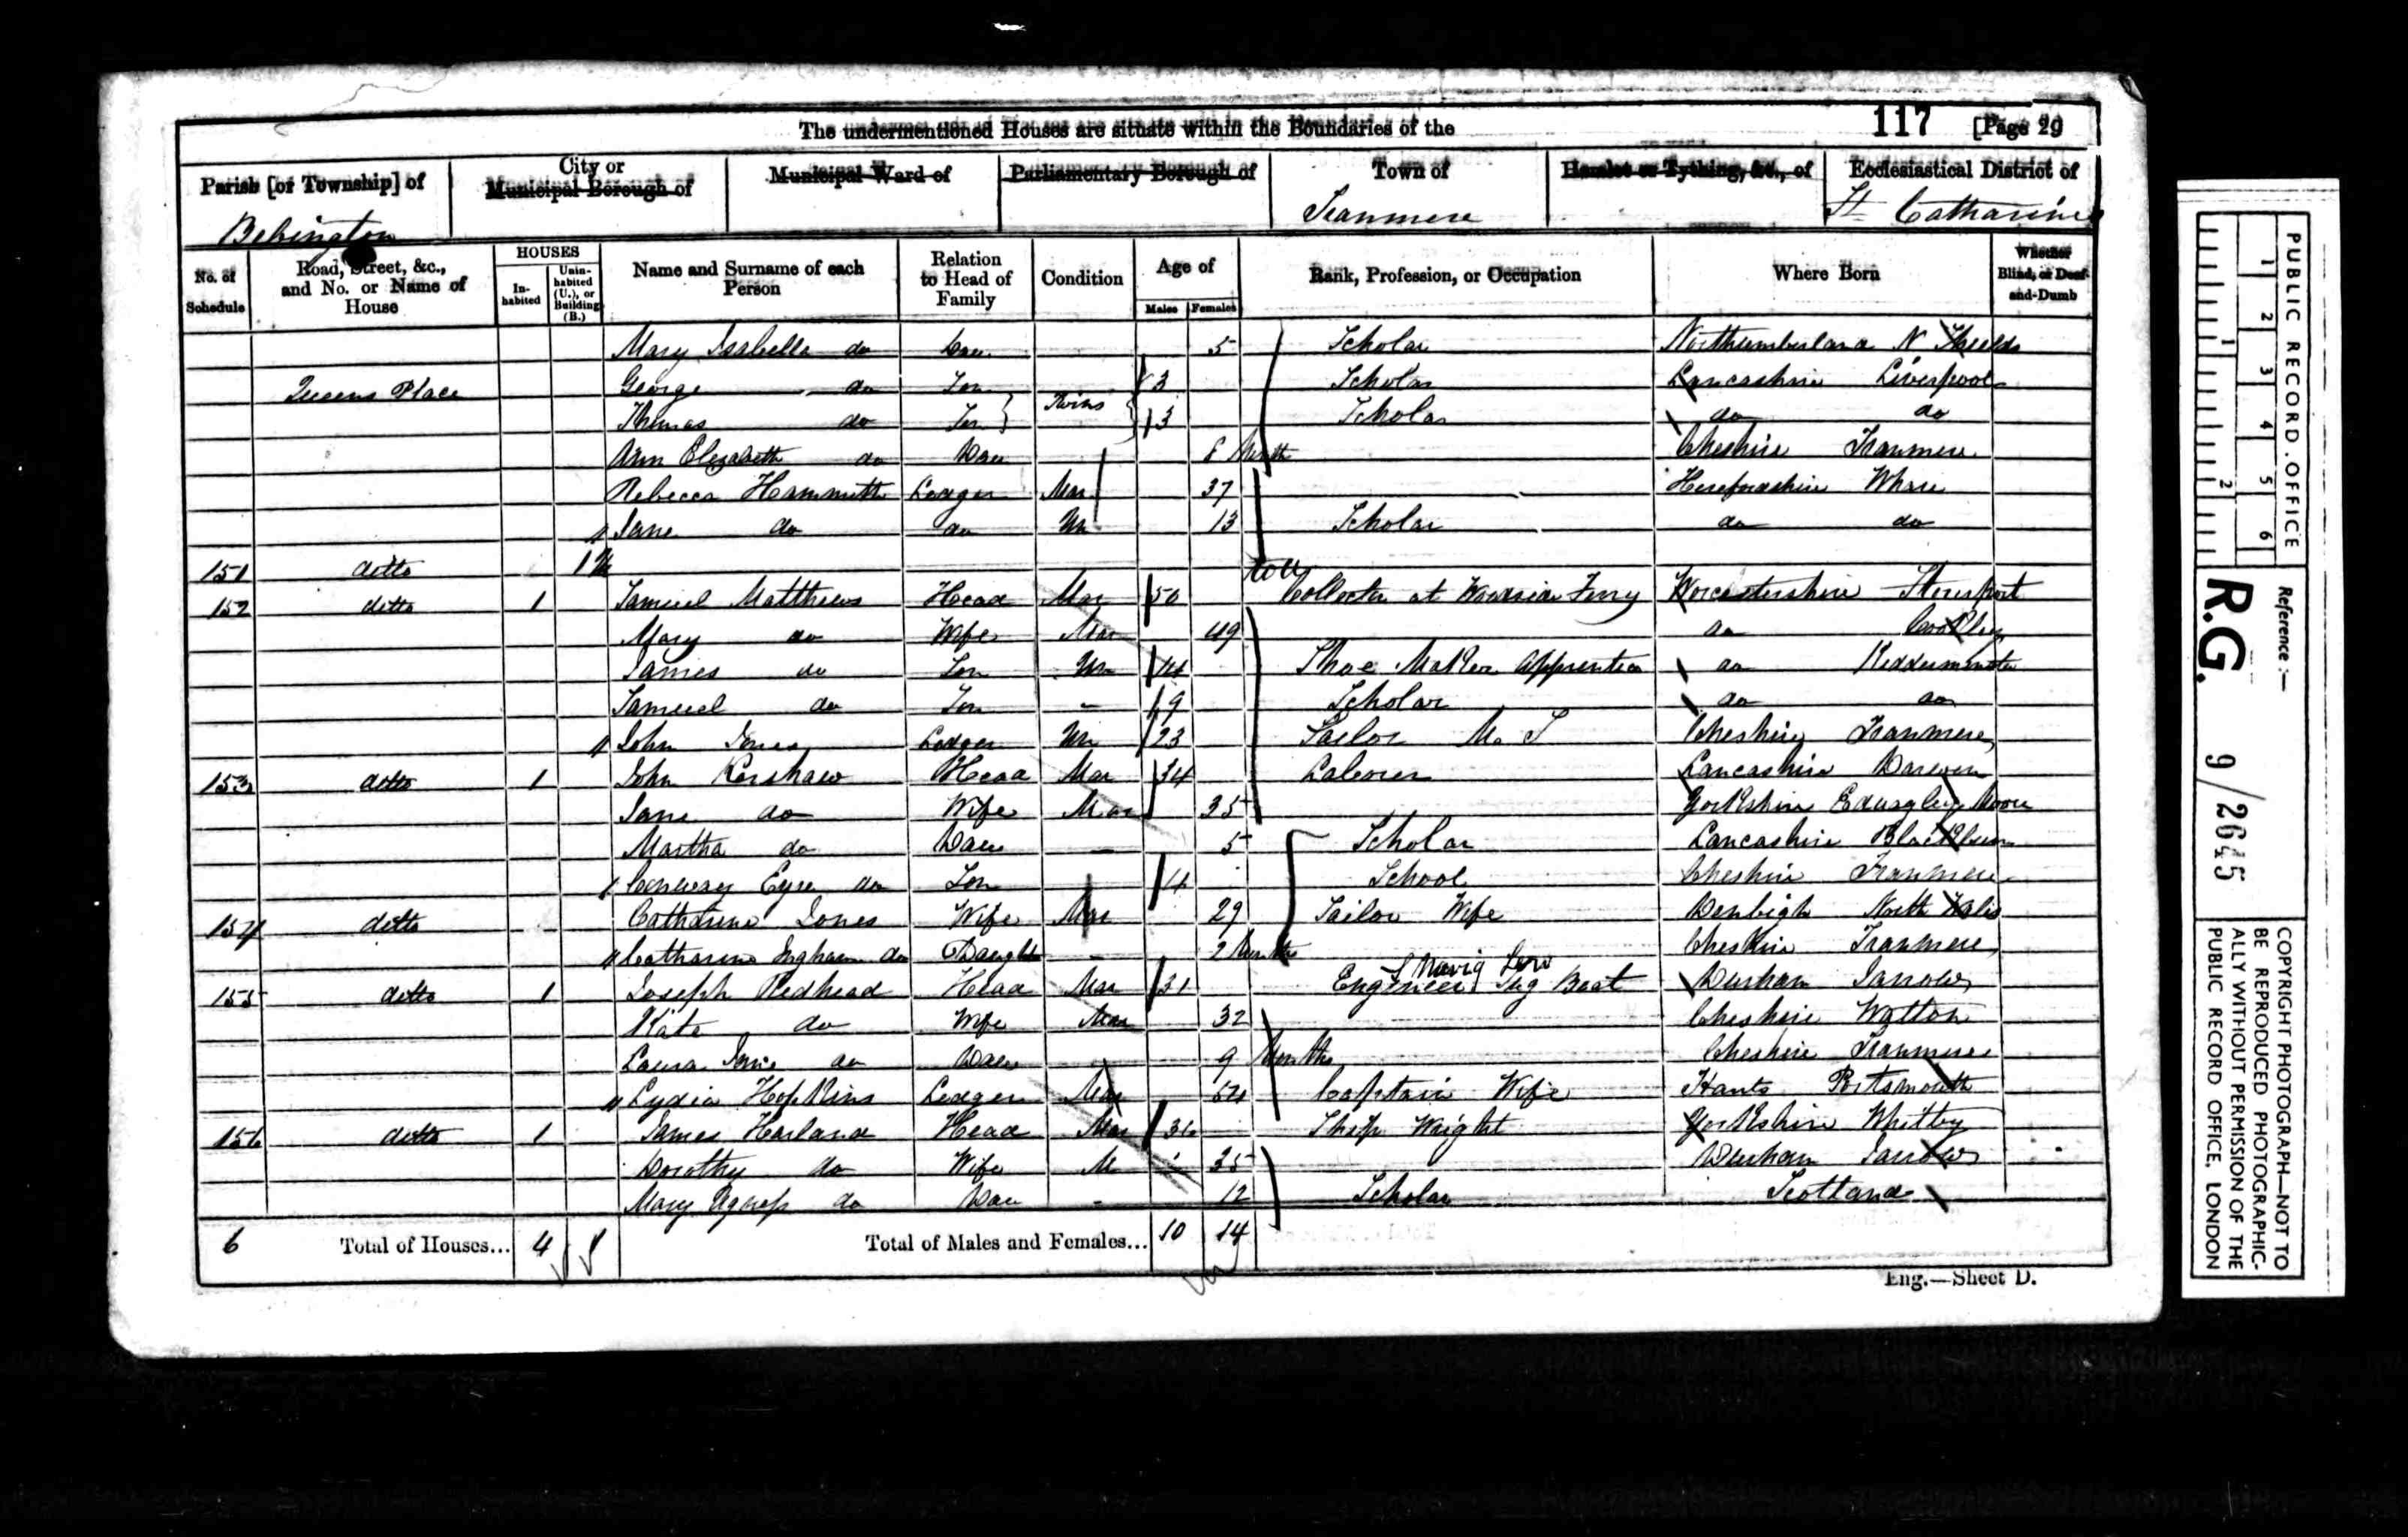 The undermentioned Houses are situate within the Boundaries of the 117 [Page 29
Parish [or Township] of City or Municipal Borough of Municipal Ward of Parliamentary Borough of Town of Hamlet or Tything, &c., of Ecclesiastical District of
Bebington Tranmere St Catharines
No. of Schedule Road, Street, &c., and No. or Name of House HOUSES Inhabited Uninhabited (U.), or Building (B.) Name and Surname of each Person Relation to Head of Family Condition Age of Males Females Rank, Profession, or Occupation Where Born Whether Blind, or Deaf-and-Dumb
Mary Isabella do Dau 5 Scholar Northumberland N Shields
Queens Place George do Son 3 Scholar Lancashire Liverpool
Thomas do Son Twins 3 Scholar do do
Ann Elizabeth do Dau 8 Month Cheshire Tranmere
Rebecca Lodger Mar 37 Herefordshire
Jane do do Un 13 Scholar do do
151 ditto 1
152 ditto 1 Samuel Matthews Head Mar 50 Toll Collector at Woodside Ferry Worcestershire Stourport
Mary do Wife Mar 49 do Cookley
James do Son Un 14 Shoe Maker Apprentice do Kidderminster
Samuel do Son - 9 Scholar do do
John Jones Lodger Un 23 Tailor Cheshire Tranmere
153 ditto 1 John Kershaw Head Mar 34 Laborer Lancashire Darwen
Jane do Wife Mar 35 Yorkshire Moore
Martha do Dau - 5 Scholar Lancashire Blackburn
do Son 4 School Cheshire Tranmere
154 ditto Catharine Jones Wife Mar 29 Tailor Wife Denbigh North Wales
Catharine Ingham do Daughter - 2 Months Cheshire Tranmere
155 ditto 1 Joseph Redhead Head Mar 31 Engineer Tug Boat Durham Jarrow
Kate do Wife Mar 32 Cheshire
Laura do Dau 9 Months Cheshire Tranmere
Lydia Hopkins Lodger Mar 54 Captain Wife Hants Portsmouth
156 ditto 1 James Harland Head Mar Ship Wright Yorkshire Whitby
Dorothy do Wife M 35 Durham Jarrow
Mary Agness do Dau - 12 Scholar Scotland
6 Total of Houses... 4 Total of Males and Females... 10 14
Eng.—Sheet D.
PUBLIC RECORD OFFICE
1 2 3 4 5 6
1 2
Reference :—
R.G. 9/2645
COPYRIGHT PHOTOGRAPH—NOT TO
BE REPRODUCED PHOTOGRAPHIC-
ALLY WITHOUT PERMISSION OF THE
PUBLIC RECORD OFFICE, LONDON